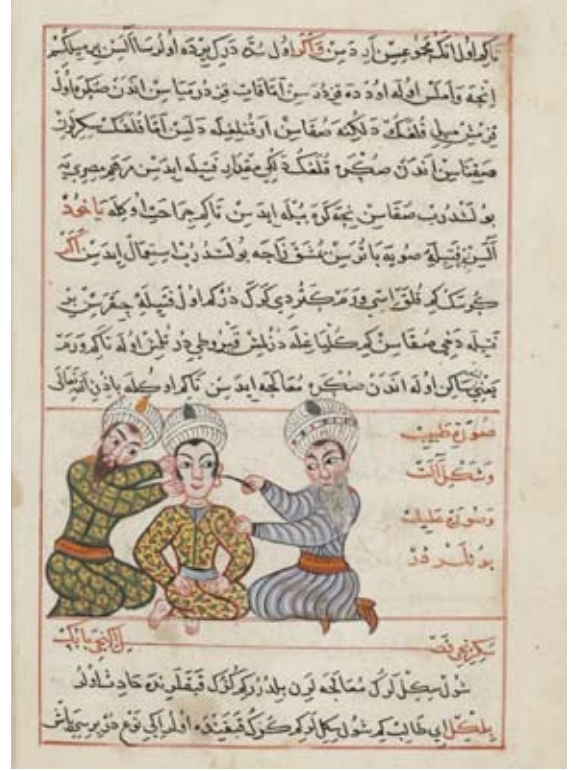 تاكم اول انك مجموعسن اردسن واكر اول سده دركم يرده اولورسا السن بر ميل كم
انجه واملس اوله اوده ده قزدرسن اما قات قزدرمياسن اندن صكره اول
قزمش ميلى قلفك دلكنه صقاسن ارقنلغله دلسن اما قلفك سكرن
صقناسن اندن صكره قلفك دلكى مقدار فتيله ايدسن مرهم مصرى يه
بولندرب صقاسن نجه كره بويله ايدسن تاكم جراحت اوكله ياخود
السن فتيله صويه باتورسن زاجه بولندرب استعمال ايدسن اكر
كورسك كم قلق اسى ورم كتوردى كرك دركم اول فتيله جقرسن بر
فتيله دخى صقاسن كم كل ياغله دزلمش قيروطى در تلمش اوله تاكم ورم
يعنى ساكن اوله اندن صكره معالجه ايدسن تاكم اوكله باذن الله تعالى
صورة طبيب
وشكل آلت
وصورة عليل
بونلردر
سكزنجى فصل ايكنجى بابك
شول سكللرك معالجه لرن بلدرر كم كوزك قپقلرنده حادث اولور
بلكل اى طالب كم شول سكللر كم كوزك قپغنده اولر ايكى نوع در برسى ياش